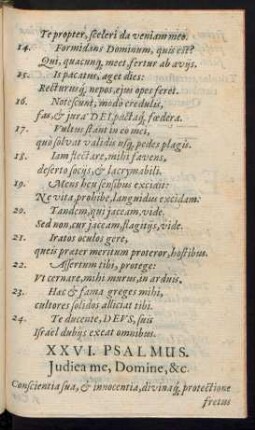 Te propter, sceleri da veniam meo.
14. Formidans Dominum, quis est?
Qui, quacunq́, meet, fertur ab avijs.
15. Is pacatus, aget dies:
Recturusq́; nepos, ejus opes feret.
16. Notescunt, modò credulis,
fas, & jura DEI, pactaq́, fœdera.
17. Vultus stant in eo mei,
quo solvat validis usq́, pedes plagis.
18. Jam flectare, mihi favens,
deserto socijs, & lacrymabili.
19. Meus heu sensibus excidit:
Ne vita, prohibe, languidus excidam.
20. Tandem, quî jaceam, vide.
Sed non, cur jaceam, flagitijs, vide.
21. Iratos oculos gere,
quêis præter meritum proteror, hostibus.
22. Assertum tibi, protege:
Ut cernare, mihi murus, in arduis.
23. Hac & fama greges mihi,
cultores solidos alliciat tibi.
24. Te ducente, DEUS, suis
Israël dubijs exeat omnibus.
XXVI. PSALMUS.
Judica me, Domine, &c.
Conscientia sua, & innocentia, divinaq́, protectione
fretus